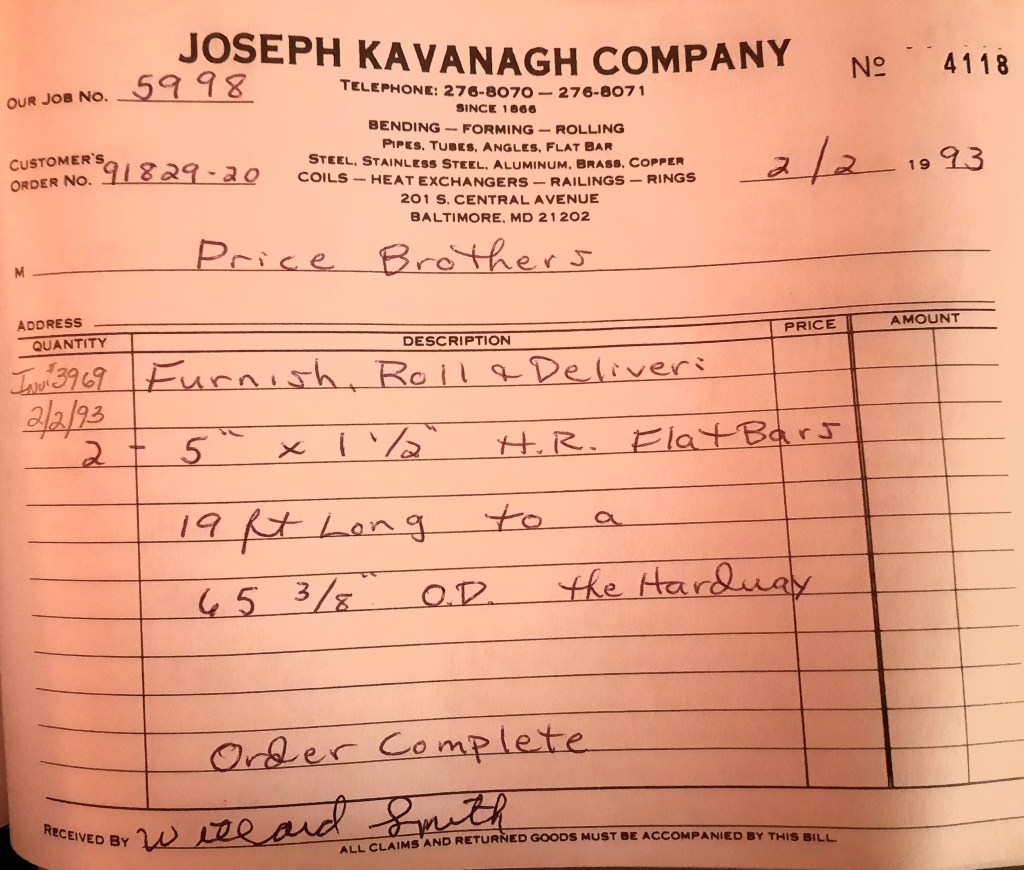 JOSEPH KAVANAGH COMPANY
Nº 4118
OUR JOB NO. 5998
TELEPHONE: 276-8070 — 276-8071
SINCE 1866
BENDING — FORMING — ROLLING
PIPES, TUBES, ANGLES, FLAT BAR
CUSTOMER'S ORDER NO. 91829-20
STEEL, STAINLESS STEEL, ALUMINUM, BRASS, COPPER
COILS — HEAT EXCHANGERS — RAILINGS — RINGS
2/2 1993
201 S. CENTRAL AVENUE
BALTIMORE, MD 21202
M Price Brothers
ADDRESS
QUANTITY DESCRIPTION PRICE AMOUNT
Inv.# 3969 Furnish, Roll & Deliver:
2/2/93
2 - 5" x 1 1/2" H.R. Flat Bars
19 ft Long to a
65 3/8" O.D. the Hardway
Order Complete
RECEIVED BY Willard Smith
ALL CLAIMS AND RETURNED GOODS MUST BE ACCOMPANIED BY THIS BILL.